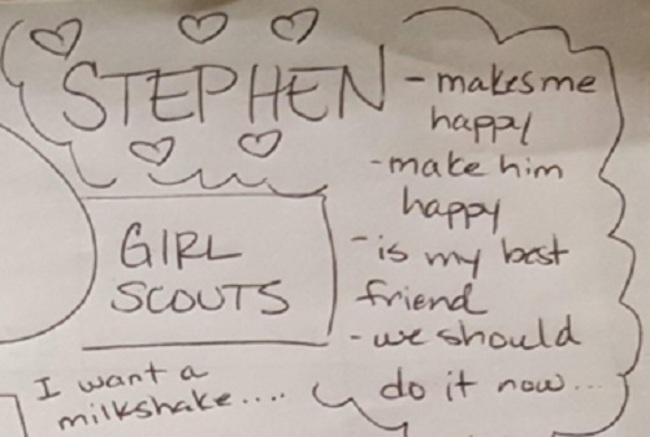 STEPHEN
- makes me
happy
- make him
happy
- is my best
friend
- we should
do it now...
GIRL
SCOUTS
I want a
milkshake....